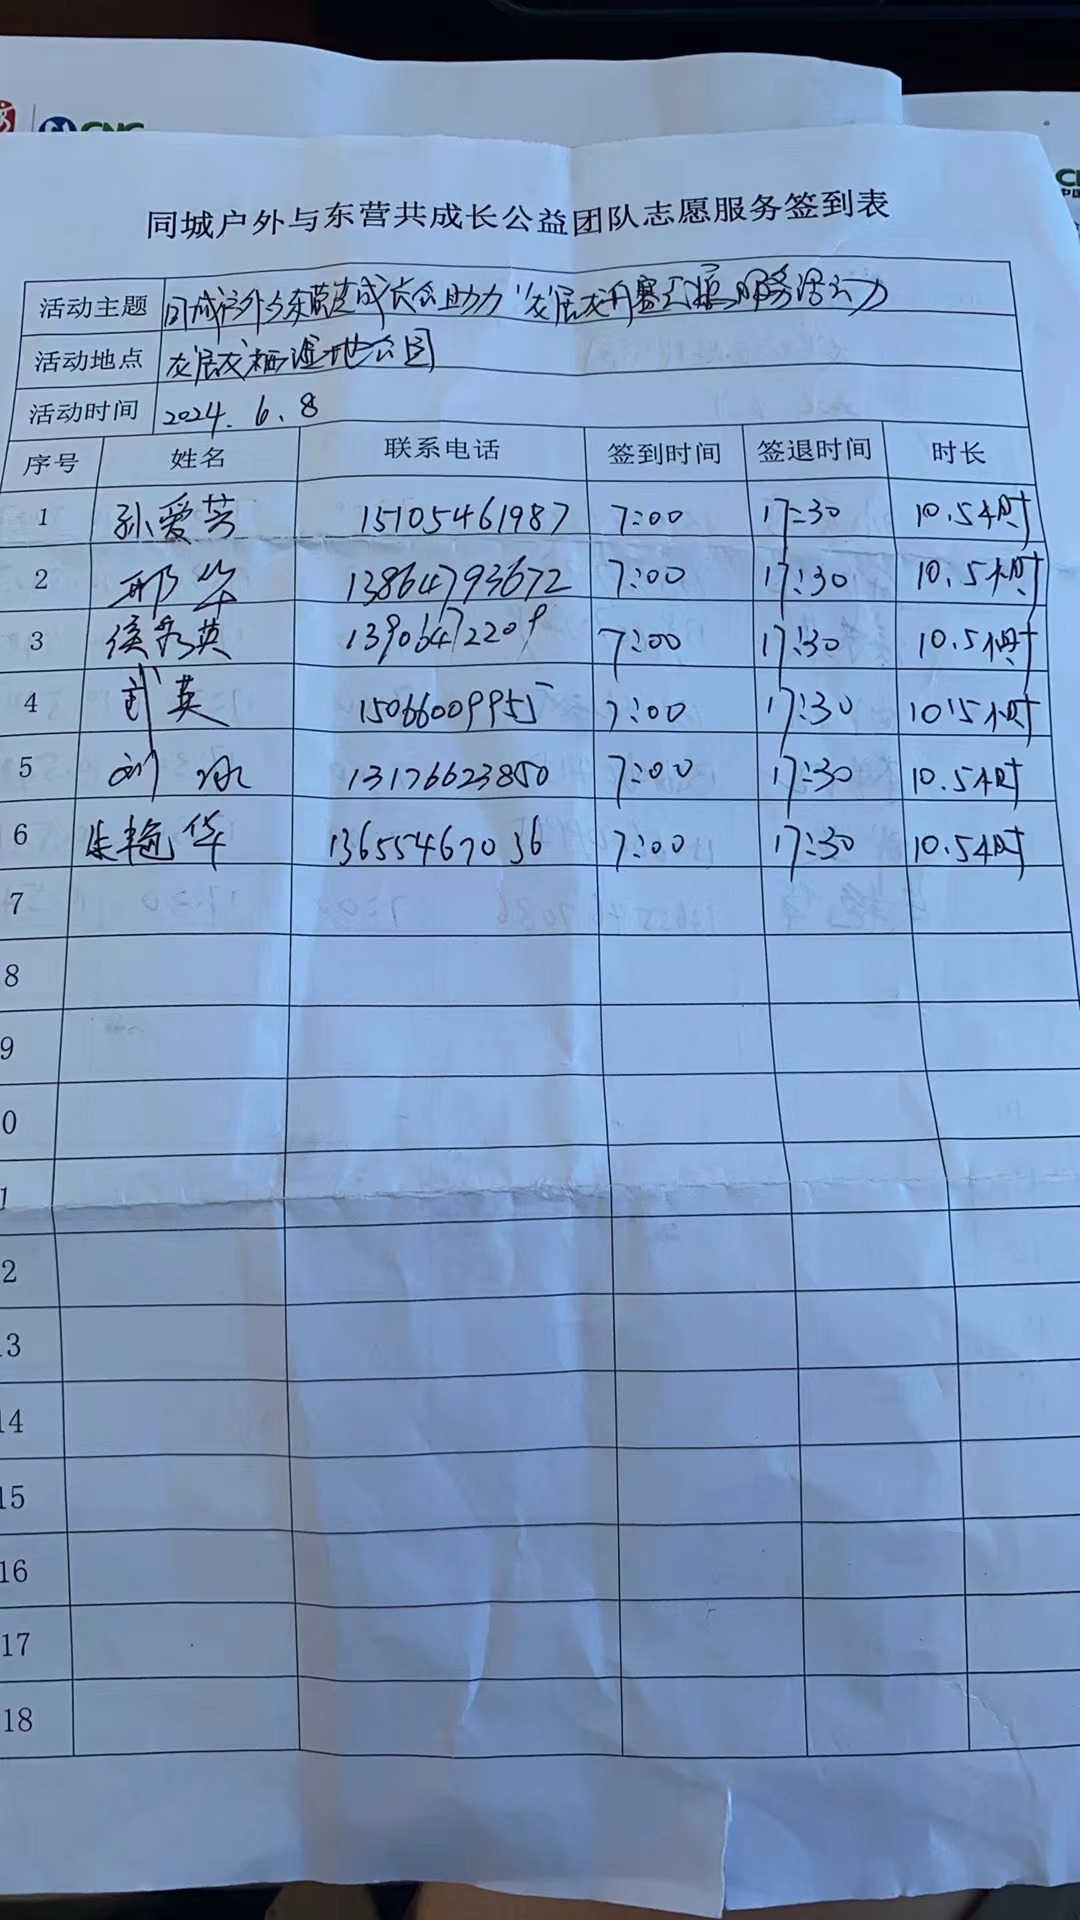 CNG
同城户外与东营共成长公益团队志愿服务签到表
活动主题 同城户外与东营共成长公益助力 服务活动
活动地点 湿地公园
活动时间 2024.6.8
序号 姓名 联系电话 签到时间 签退时间 时长
1 孙爱芳 15105461987 7:00 17:30 10.5小时
2 邢华 13864793672 7:00 17:30 10.5小时
3 侯秀英 13906472209 7:00 17:30 10.5小时
4 武英 15066009955 7:00 17:30 10.5小时
5 刘冰 13176623850 7:00 17:30 10.5小时
6 朱艳华 13655467036 7:00 17:30 10.5小时
7
8
9
0
1
2
13
14
15
16
17
18